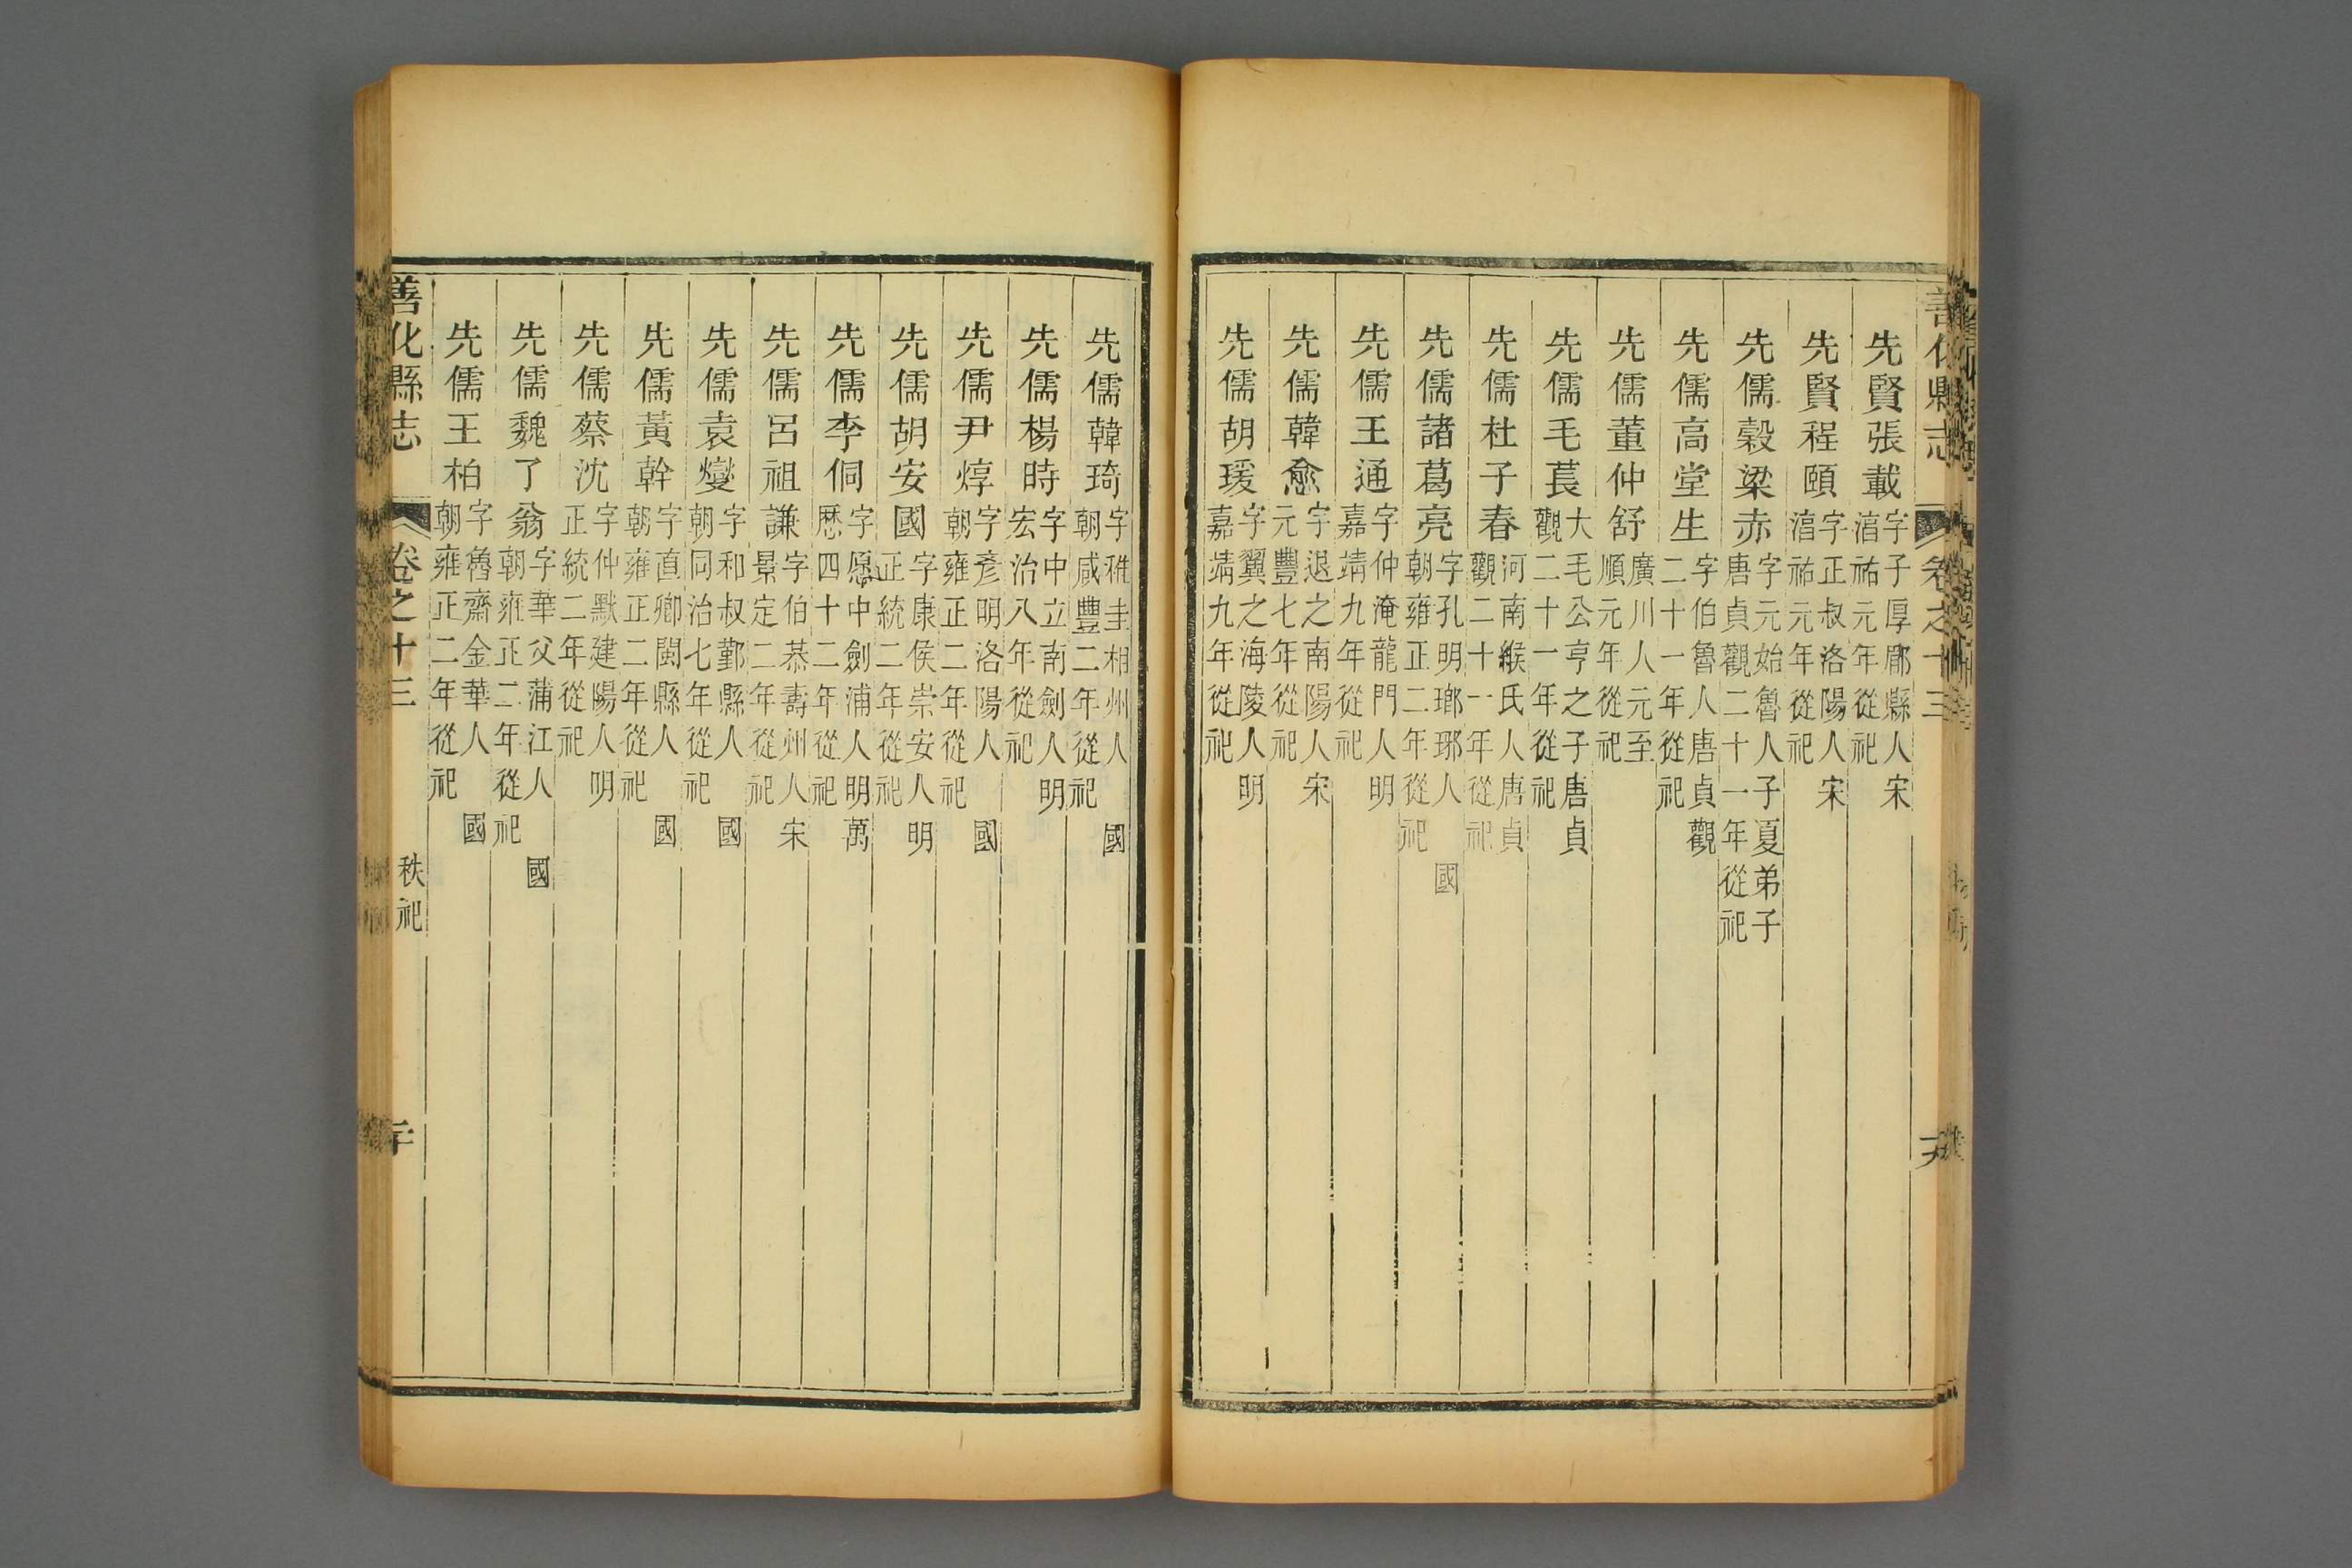 善化縣志 卷之十三
先賢張載字子厚郿縣人宋淯祐元年從祀
先賢程頤字正叔洛陽人宋淯祐元年從祀
先儒穀梁赤字元始魯人子夏弟子唐貞觀二十一年從祀
先儒高堂生字伯魯人唐貞觀二十一年從祀
先儒董仲舒廣川人元至順元年從祀
先儒毛萇大毛公亨之子唐貞觀二十一年從祀
先儒杜子春河南緱氏人唐貞觀二十一年從祀
先儒諸葛亮字孔明瑯琊人國朝雍正二年從祀
先儒王通字仲淹龍門人明嘉靖九年從祀
先儒韓愈字退之南陽人宋元豐七年從祀
先儒胡瑗字翼之海陵人明嘉靖九年從祀
先儒韓琦字稚圭相州人國朝咸豐二年從祀
先儒楊時字中立南劍人明宏治八年從祀
先儒尹焞字彥明洛陽人國朝雍正二年從祀
先儒胡安國字康侯崇安人明正統二年從祀
先儒李侗字愿中劍浦人明萬歷四十二年從祀
先儒呂祖謙字伯恭壽州人宋景定二年從祀
先儒袁燮字和叔鄞縣人國朝同治七年從祀
先儒黃幹字直卿閩縣人國朝雍正二年從祀
先儒蔡沈字仲默建陽人明正統二年從祀
先儒魏了翁字華父蒲江人國朝雍正二年從祀
先儒王柏字魯齋金華人國朝雍正二年從祀
善化縣志 卷之十三 秩祀